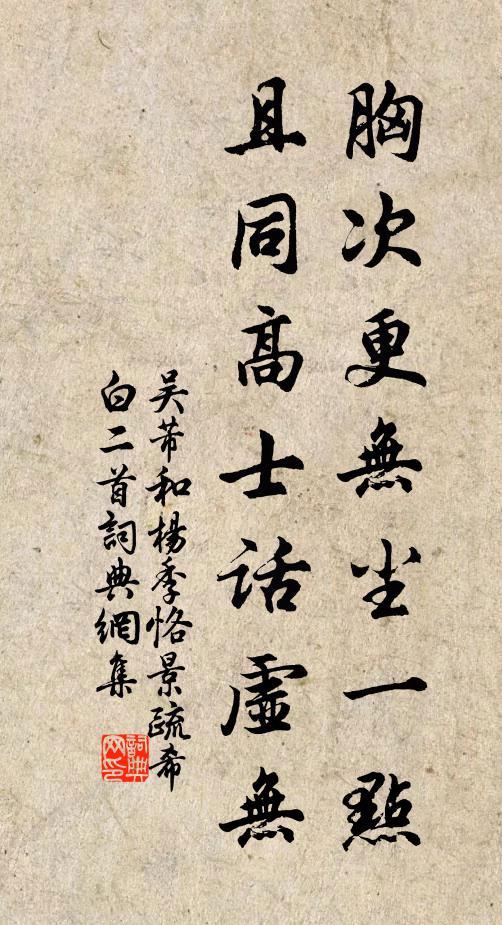 胸次更無尘一點
且同高士話虛無
吴芾和楊季恪景疏希
白二首詞典網集
詞典网印